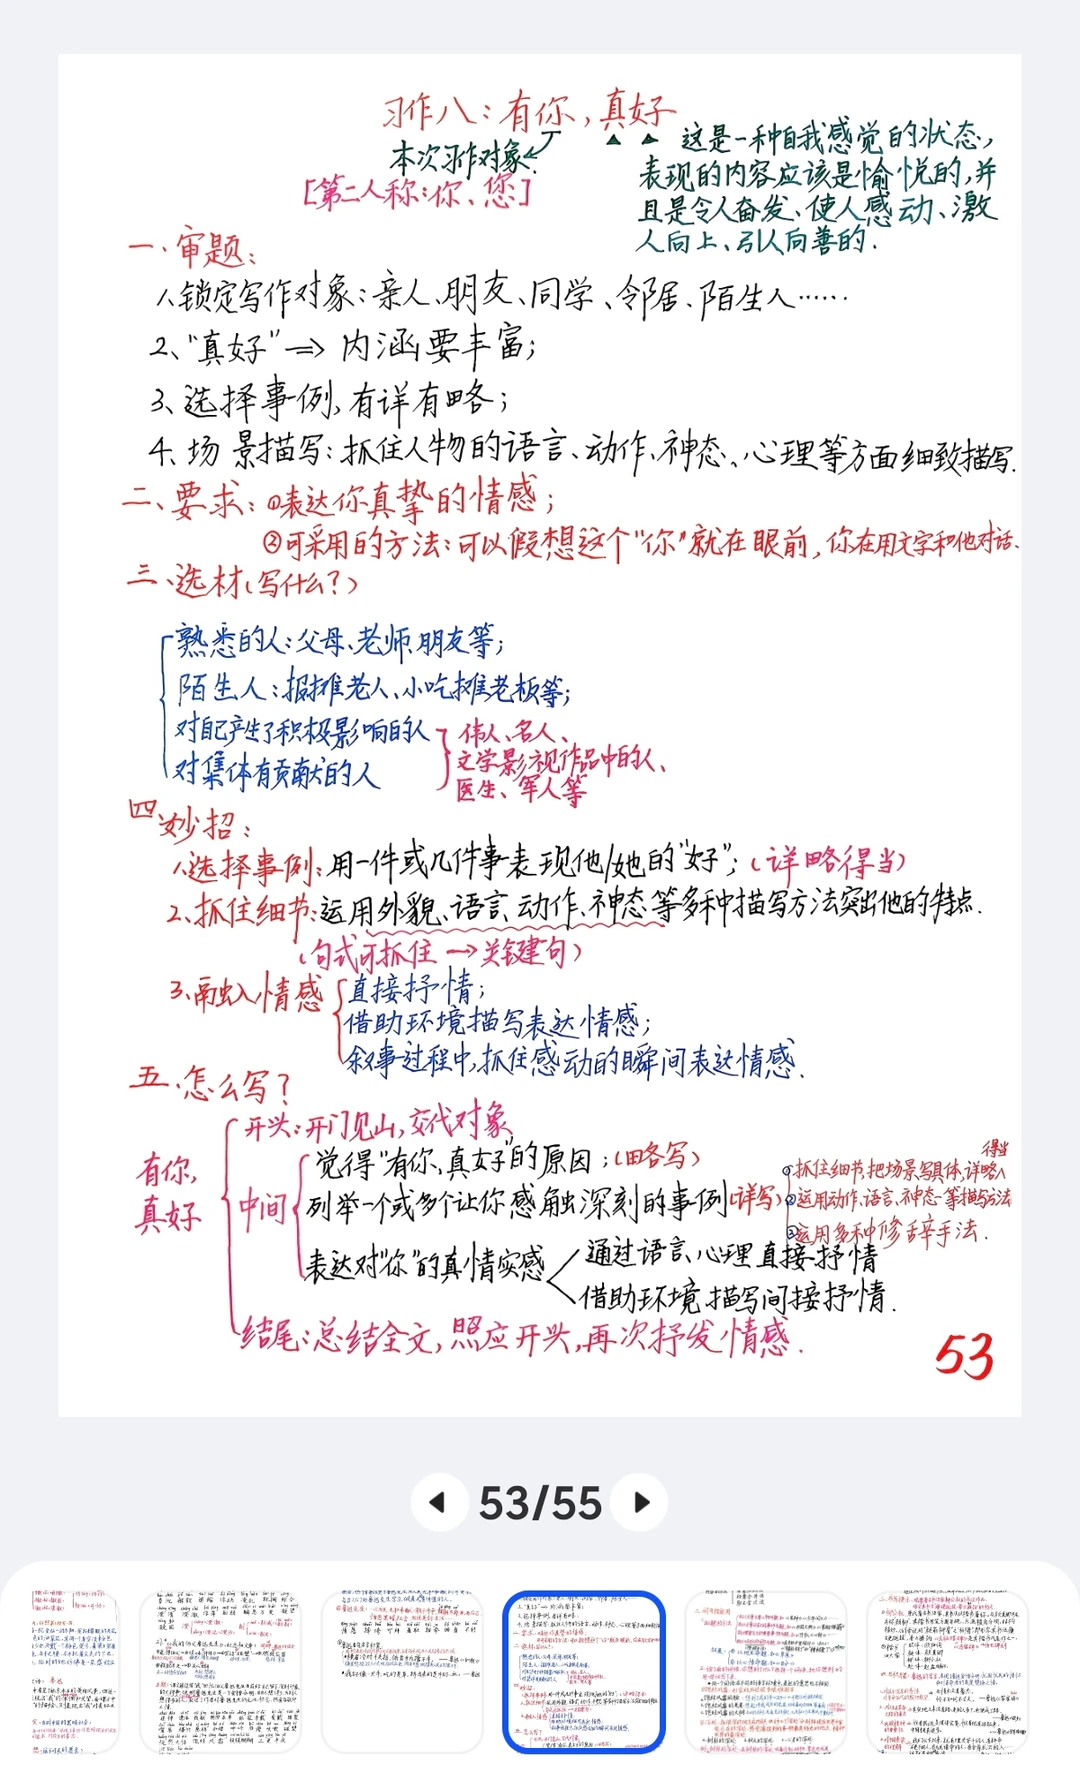 习作八：有你，真好
本次习作对象.
[第二人称:你、您]
▲ ▲ 这是一种自我感觉的状态，
表现的内容应该是愉悦的,并
且是令人奋发、使人感动、激
人向上、引人向善的.
一、审题：
1、锁定写作对象：亲人、朋友、同学、邻居、陌生人……
2、“真好”⇒ 内涵要丰富；
3、选择事例,有详有略；
4、场景描写：抓住人物的语言、动作、神态、心理等方面细致描写.
二、要求：①表达你真挚的情感；
②可采用的方法：可以假想这个“你”就在眼前，你在用文字和他对话.
三、选材(写什么？)
熟悉的人：父母、老师、朋友等；
陌生人：报摊老人、小吃摊老板等；
对自己产生了积极影响的人
对集体有贡献的人
伟人、名人、
文学影视作品中的人、
医生、军人等
四、妙招：
1、选择事例：用一件或几件事表现他/她的“好”；(详略得当)
2、抓住细节：运用外貌、语言、动作、神态等多种描写方法突出他的特点.
(句式可抓住→关键句)
3、融入情感
直接抒情；
借助环境描写表达情感；
叙事过程中,抓住感动的瞬间表达情感.
五、怎么写？
有你,
真好
开头：开门见山,交代对象
中间
觉得“有你、真好”的原因；(略写)
列举一个或多个让你感触深刻的事例(详写)
①抓住细节,把场景写具体,详略得当
②运用动作、语言、神态等描写方法
③运用多种修辞手法.
表达对“你”的真情实感
通过语言、心理直接抒情
借助环境描写间接抒情.
结尾：总结全文,照应开头,再次抒发情感.
53
53/55